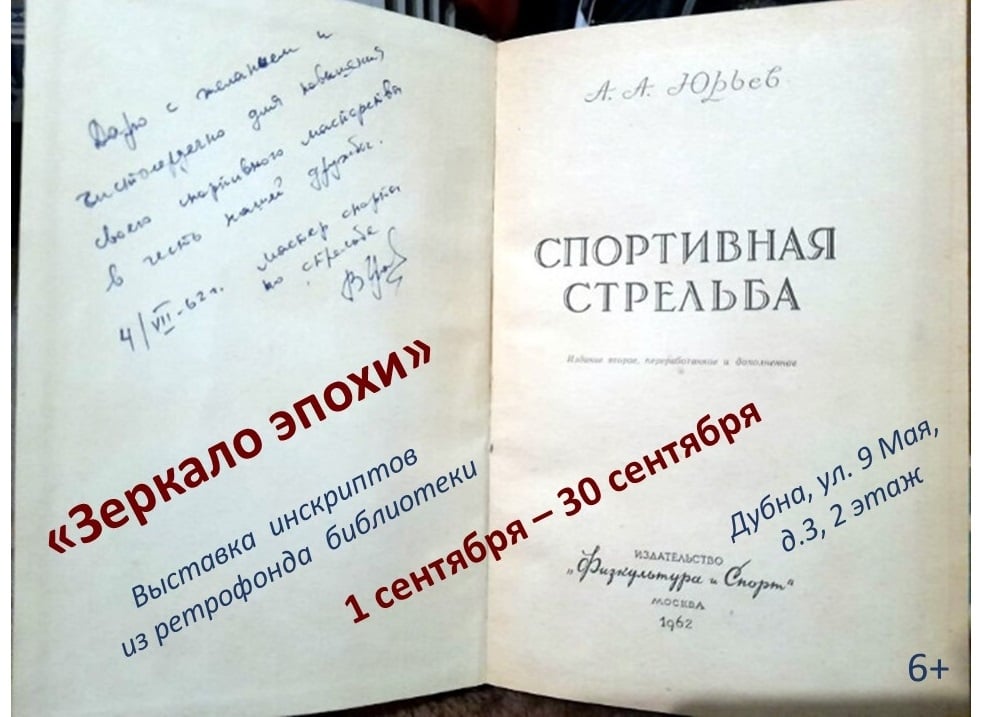 Дарю с желанием и
чистосердечно для повышения
своего спортивного мастерства
в честь нашей дружбы.
мастер спорта
по стрельбе
4/VII-62г.
«Зеркало эпохи»
Выставка инскриптов
из ретрофонда библиотеки
1 сентября – 30 сентября
А. А. Юрьев
СПОРТИВНАЯ
СТРЕЛЬБА
Издание второе, переработанное и дополненное
Дубна, ул. 9 Мая,
д.3, 2 этаж
ИЗДАТЕЛЬСТВО
„Физкультура и Спорт“
МОСКВА
1962
6+